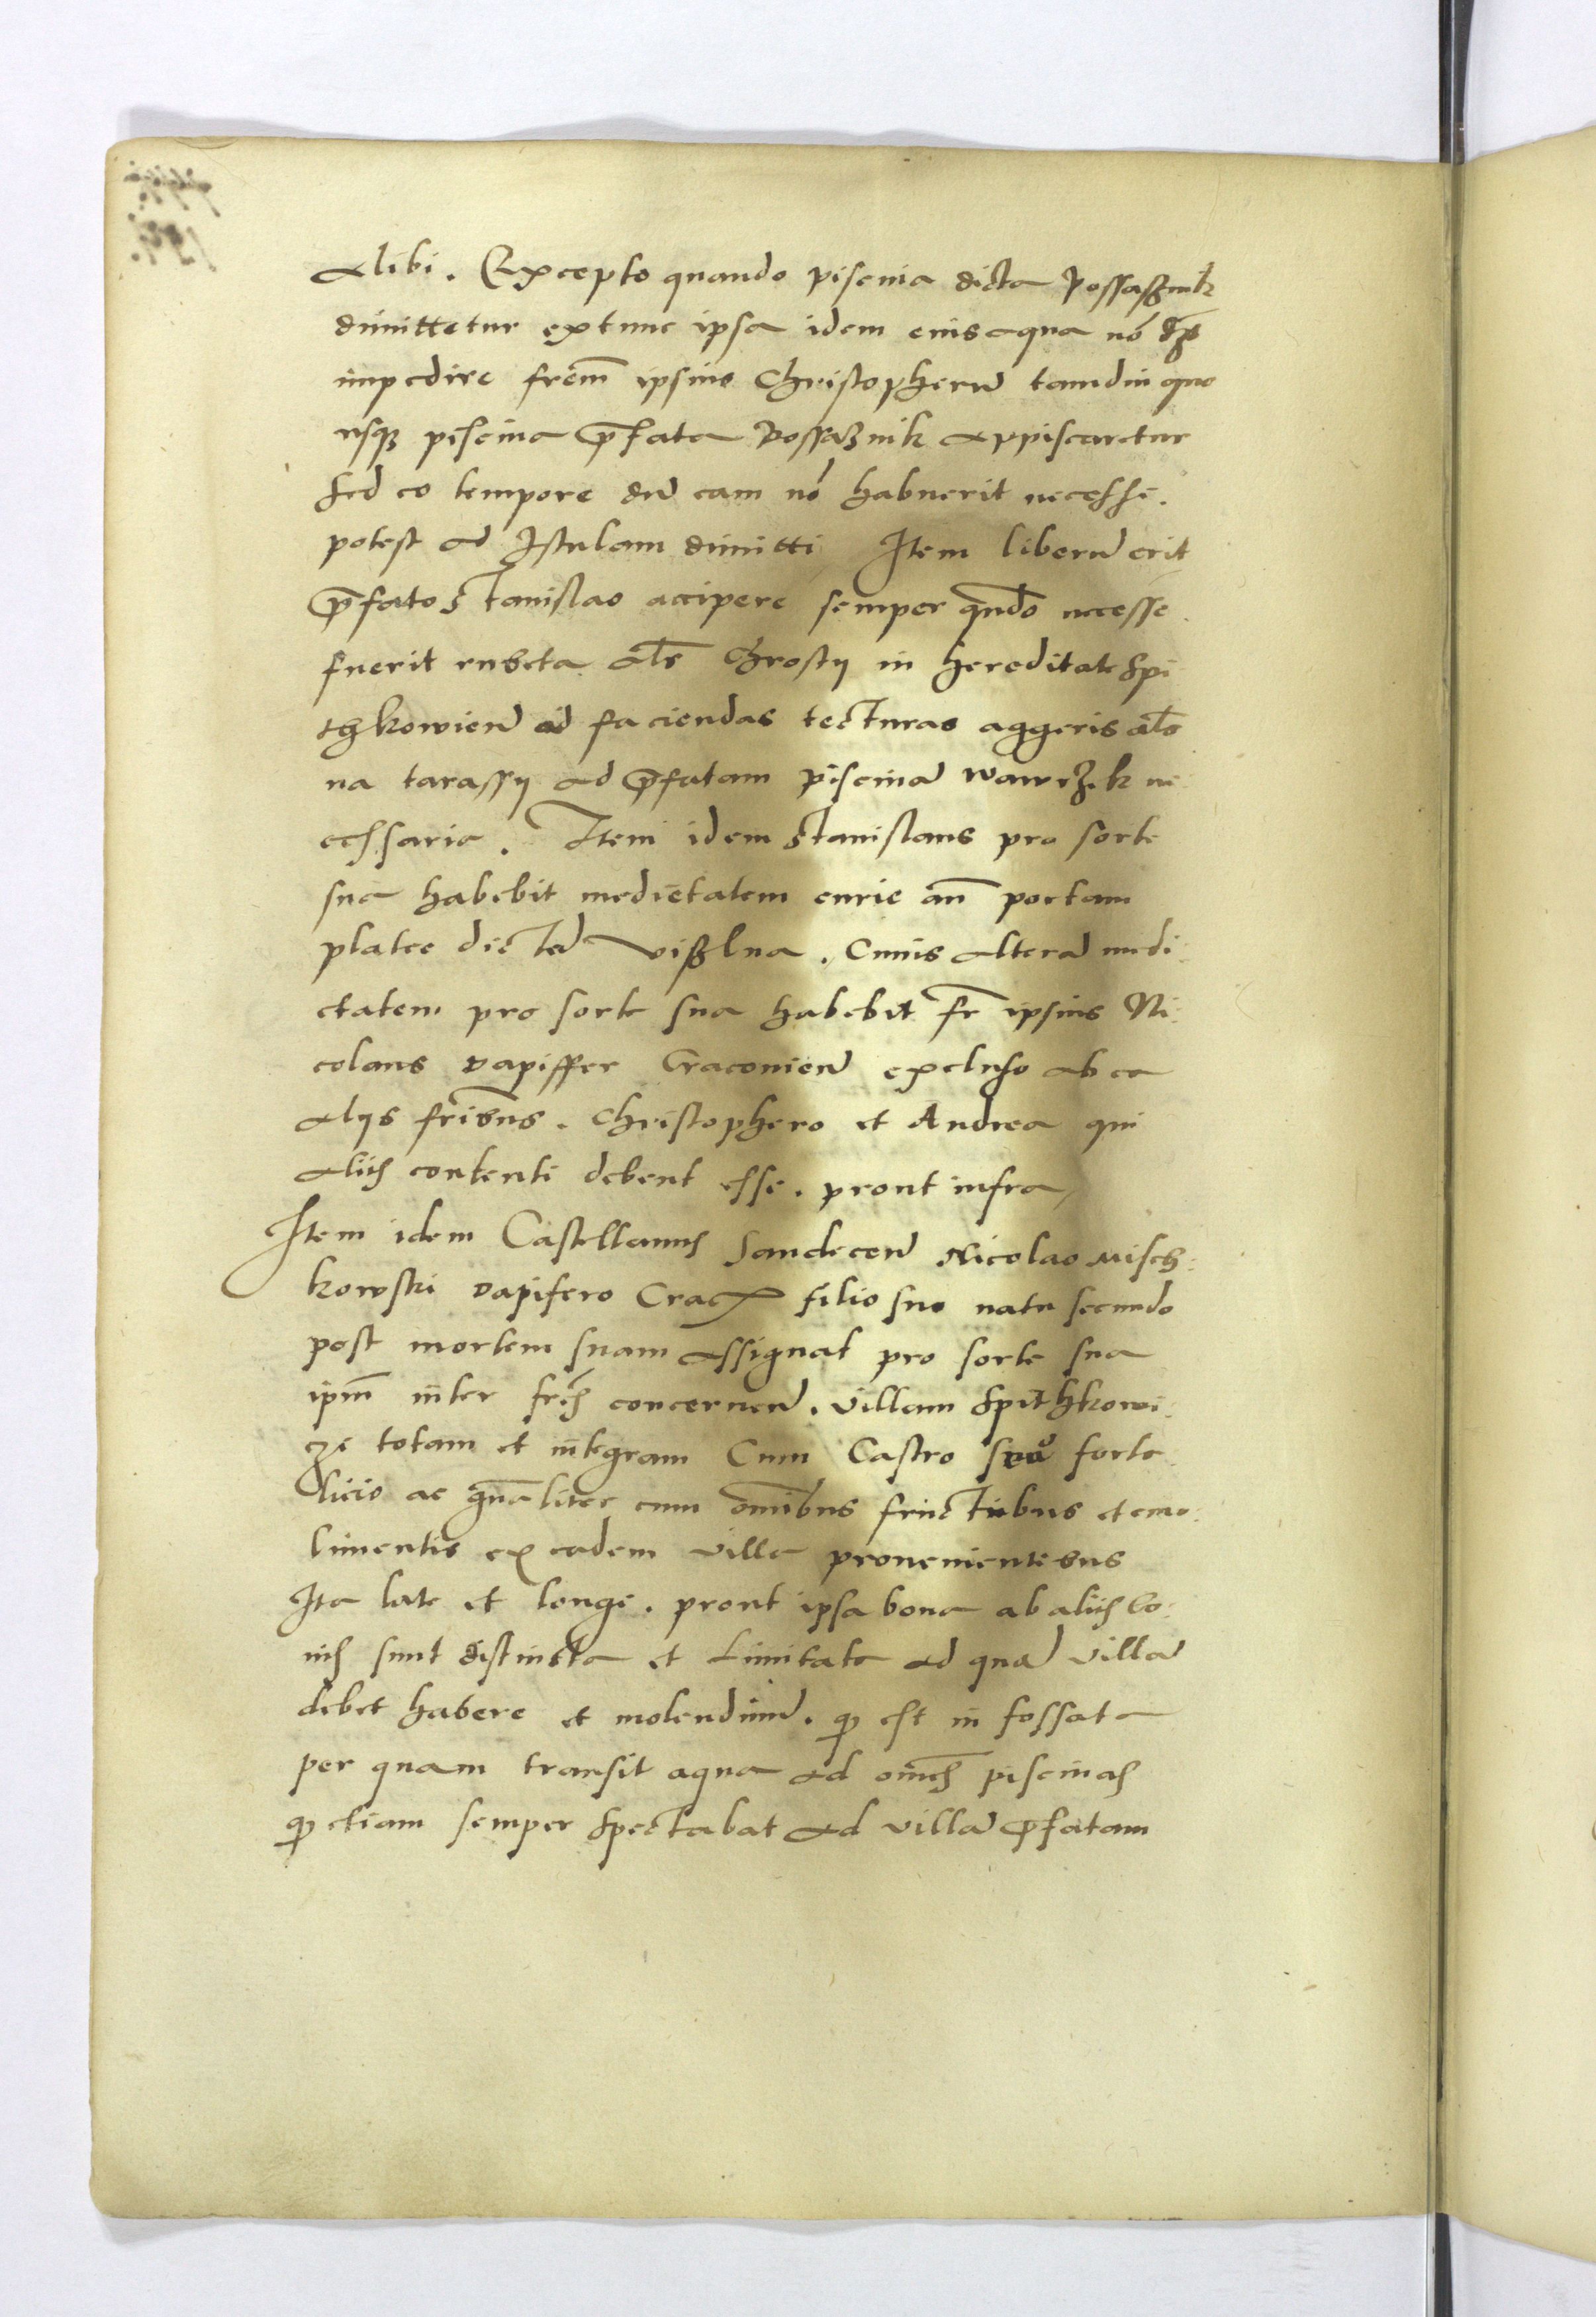 alibi. Excepto quando piscina dicta Possaßnik
dimittetur extunc ipsa idem eius aqua nō
impedire frēm ipsius Christopherū tamdiu quo
usqȝ piscina p̄fata Possaßnik appiscaretur
sed eo tempore dū eam nō habuerit necesse.
potest ad Istulam dimitti Item liberū erit
p̄fato Stanislao accipere semper qn̄do necesse
fuerit rubeta al̄s Chrosty in hereditate Spi
thkowień ad faciendas tecturas aggeris al̄s
na tarassy ad p̄fatam piscinā Wawrzek ne
cessaria. Item idem Stanislaus pro sorte
sua habebit medietatem curie an̄ portam
platee dictā Vißlna. Cuius alterā medi:
etatem pro sorte sua habebit fr̄ ipsius Ni:
colaus dapiffer Cracovień excluso ab ea
aliis fr̄ibus. Christophero et Andrea qui
aliis contenti debent esse. prout infra
Item idem Castellanus Sandeceń Nicolao Misch:
kowski dapifero Crac filio suo natu secundo
post mortem suam assignat pro sorte sua
ipm̄ inter fr̄es concerneń. villam Spithkowi:
cze totam et integram Cum Castro seu forta
licio ac gn̄aliter cum om̄ibus fructibus et emo:
limentis ex eadem villa provenientibus
Ita late et longe. prout ipsa bona ab aliis bo:
nis sunt distincta et limitata ad quā villā
debet habere et molendinū. qd est in fossata
per quam transit aqua ad om̄es piscinas
qd etiam semper spectabat ad villā p̄fatam